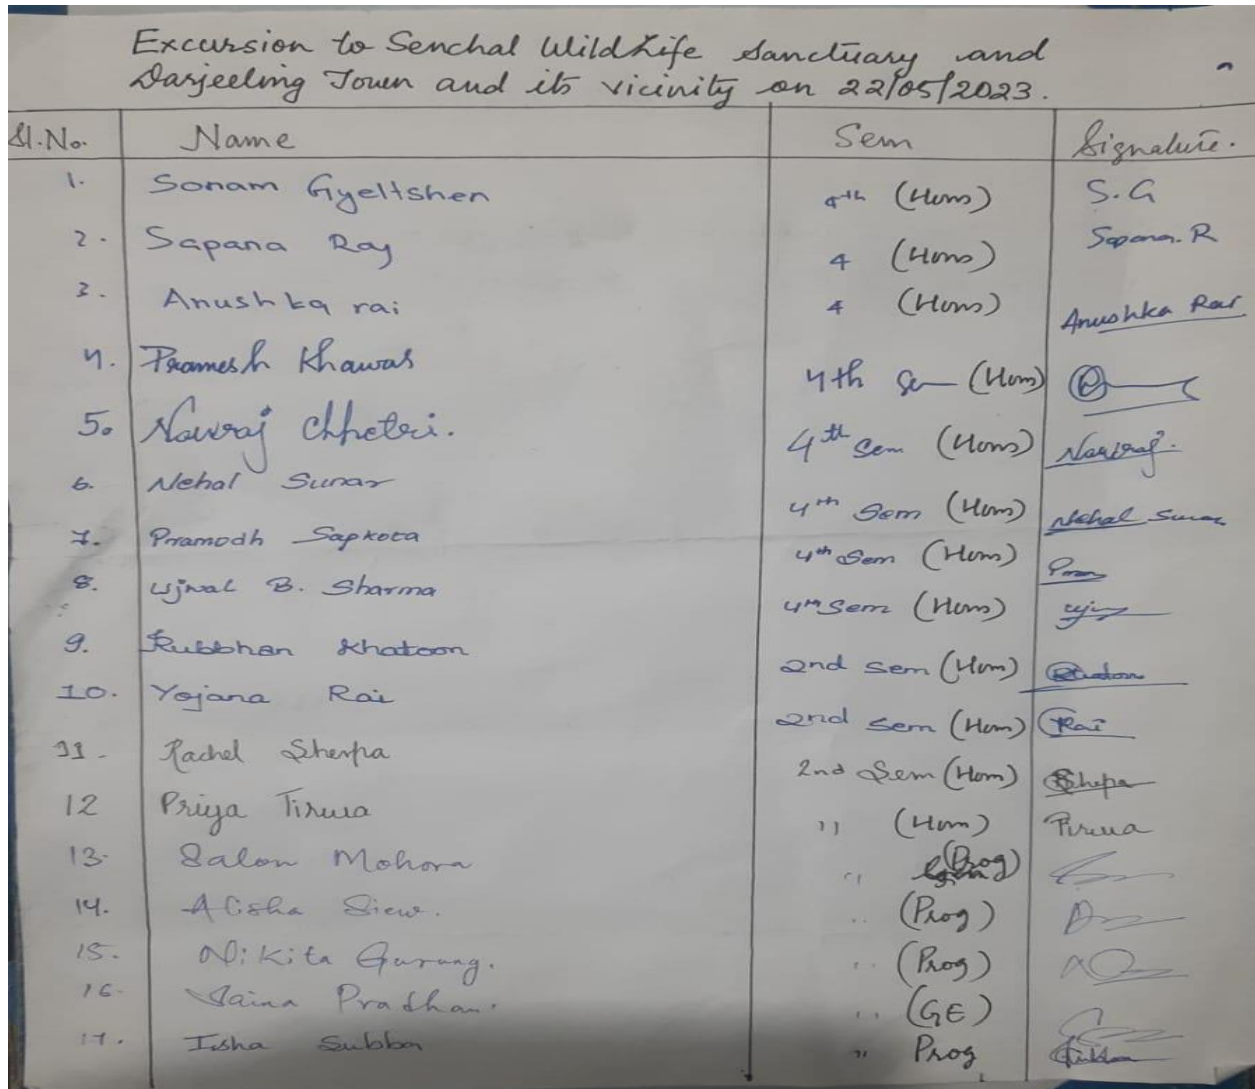 Excursion to Senchal WildLife Sanctuary and
Darjeeling Town and its vicinity on 22/05/2023.
Sl.No. Name Sem Signature.
1. Sonam Gyeltshen 4th (Hons) S.G
2. Sapana Ray 4 (Hons) Sapana. R
3. Anushka rai 4 (Hons) Anushka Rai
4. Pramesh Khawas 4th Sem (Hons)
5. Navraj Chhetri. 4th Sem (Hons) Navraj.
6. Nehal Sunar 4th Sem (Hons) Nehal Sunar
7. Pramodh Sapkota 4th Sem (Hons)
8. Ujwal B. Sharma 4th Sem (Hons)
9. Rubbhan Khatoon 2nd Sem (Hons)
10. Yojana Rai 2nd Sem (Hons) Rai
11. Rachel Sherpa 2nd Sem (Hons) Sherpa
12 Priya Tirwa " (Hons) Tirwa
13. Salon Mohora " (Prog)
14. Alisha Siew. " (Prog)
15. Nikita Gurung. " (Prog)
16. Saina Pradhan. " (GE)
17. Isha Subba " Prog